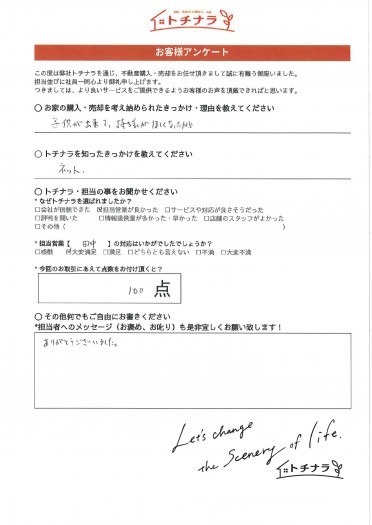 トチナラ
お客様アンケート
この度は弊社トチナラを通じ、不動産購入・売却をお任せ頂きまして誠に有難う御座いました。
担当並びに社員一同心より御礼申し上げます。
つきましては、より良いサービスをご提供できるようお客様のお声を頂戴できればと思います。
○ お家の購入・売却を考え始められたきっかけ・理由を教えてください
子供が出来て、持ち家がほしくなったから
○ トチナラを知ったきっかけを教えてください
ネット、
○ トチナラ・担当の事をお聞かせください
* なぜトチナラを選ばれましたか？
□会社が信頼できた ☑担当営業が良かった □サービスや対応が良さそうだった
□評判を聞いた □情報提供量が多かった・早かった □店舗のスタッフがよかった
□その他（ ）
* 担当営業【 田中 】の対応はいかがでしたでしょうか？
□感動 ☑大変満足 □満足 □どちらとも言えない □不満 □大変不満
* 今回のお取引にあえて点数をお付け頂くと？
100 点
○ その他何でもご自由にお書きください
*担当者へのメッセージ（お褒め、お叱り）も是非宜しくお願い致します！
ありがとうございました。
Let's change
the Scenery of life.
トチナラ